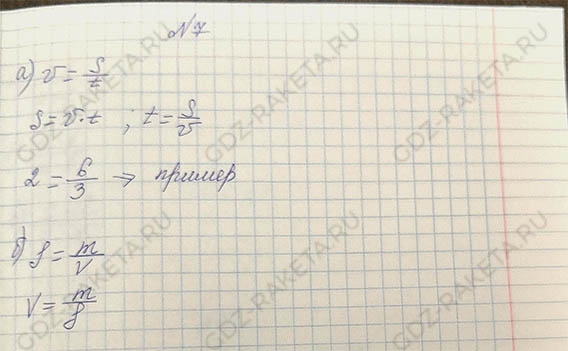 № 7
а) v = S/t
S = v·t ; t = S/v
2 = 6/3 → пример
б) ρ = m/V
V = m/ρ
GDZ-RAKETA.RU
GDZ-RAKETA.RU
GDZ-RAKETA.RU
GDZ-RAKETA.RU
GDZ-RAKETA.RU
GDZ-RAKETA.RU